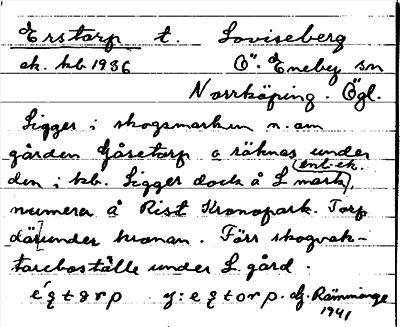 Erstarp t. Loviseberg
ek. kb 1936 Ö. Eneby sn
Norrköping. Ögl.
Ligger i skogsmarken n. om
gården Gåsetorp o räknas under
den i kb. Ligger dock å L mark (enl. ek.),
numera å Rist Kronopark. Torp
där under kronan. Förr skogvak-
tareboställe under L. gård.
1941